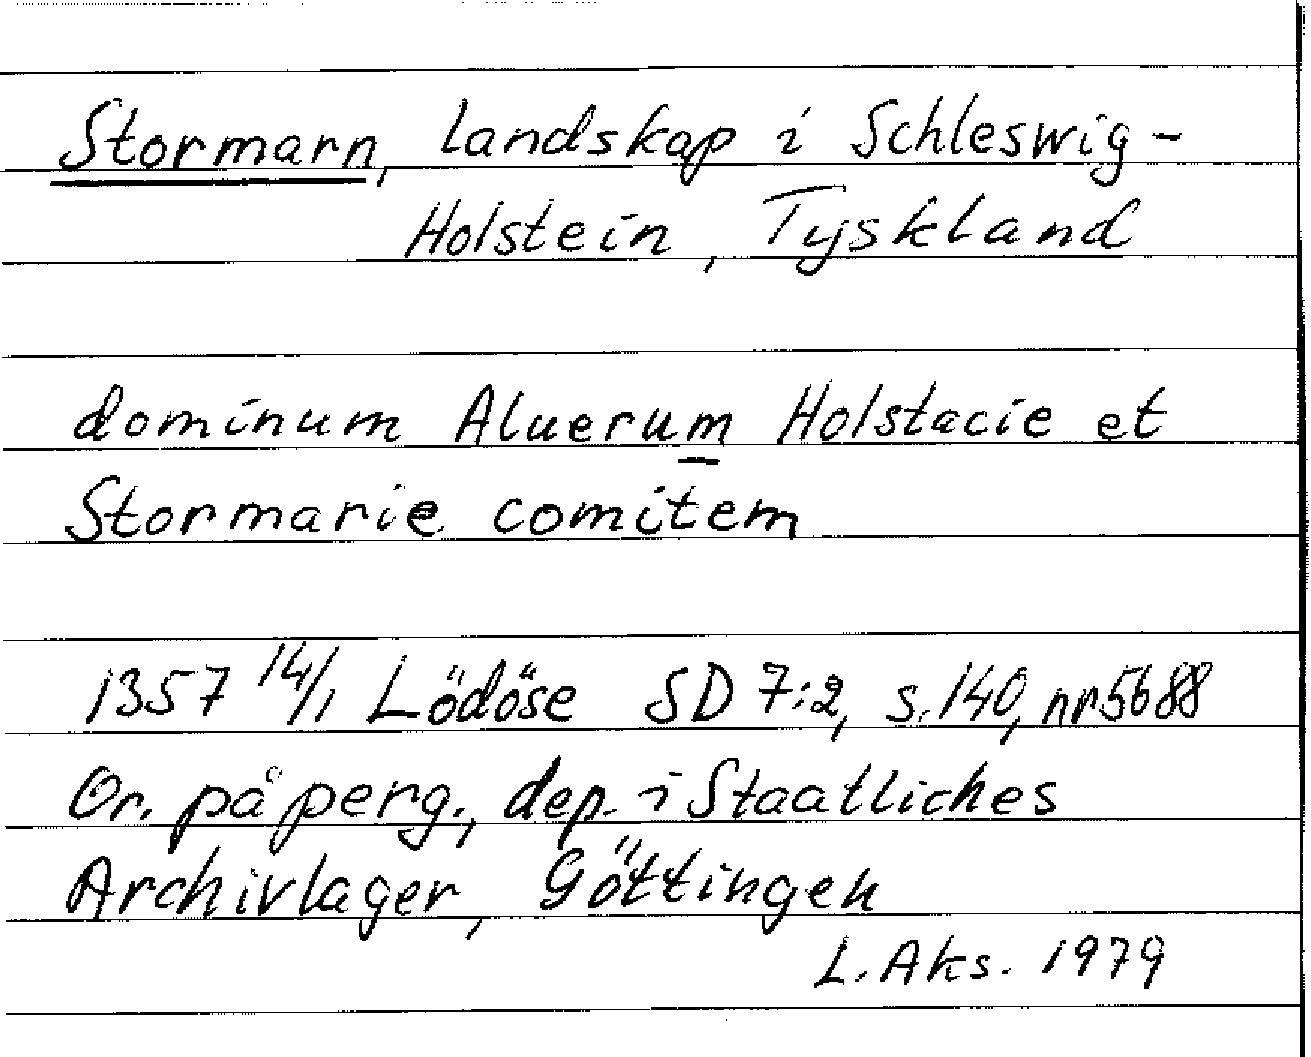 Stormarn, landskap i Schleswig-
Holstein, Tyskland
dominum Aluerum Holstacie et
Stormarie comitem
1357 14/1 Lödöse SD 7:2, s. 140, nr 5688
Or. på perg., dep. i Staatliches
Archivlager, Göttingen
L. Aks. 1979